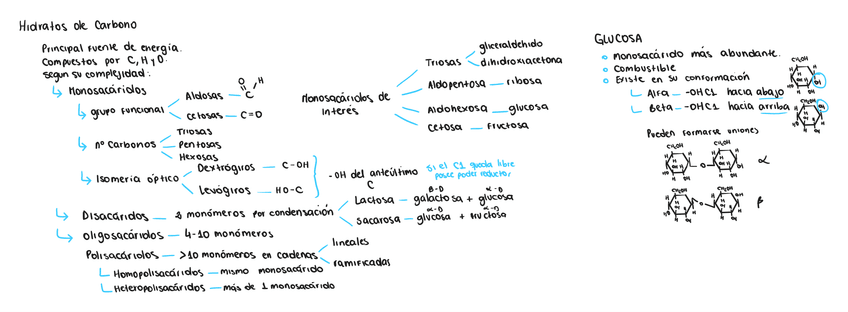 Hidratos de Carbono
Principal fuente de energía.
Compuestos por C, H y O.
según su complejidad:
Monosacáridos
grupo funcional
Aldosas
O
H
C
Cetosas — C=O
nº Carbonos
Triosas
Pentosas
Hexosas
Isomería óptico
Dextrógiros — C-OH
Levógiros — HO-C
-OH del anteúltimo
C
Si el C1 queda libre
posee poder reductor
Disacáridos — 2 monómeros por condensación
β-D α-D
Lactosa — galactosa + glucosa
α-D
Sacarosa — glucosa + fructosa
oligosacáridos — 4-10 monómeros
Polisacáridos — >10 monómeros en cadenas
lineales
ramificadas
Homopolisacáridos — mismo monosacárido
Heteropolisacáridos — más de 1 monosacárido
Monosacáridos de
interés
Triosas
gliceraldehido
dihidroxiacetona
Aldopentosa — ribosa
Aldohexosa — glucosa
Cetosa — Fructosa
GLUCOSA
Monosacárido más abundante.
Combustible
Existe en su conformación
Alfa — -OHC1 hacia abajo
Beta — -OHC1 hacia arriba
CH₂OH
CH₂OH
Pueden formarse uniones
CH₂OH CH₂OH
O
α
CH₂OH CH₂OH
O
β